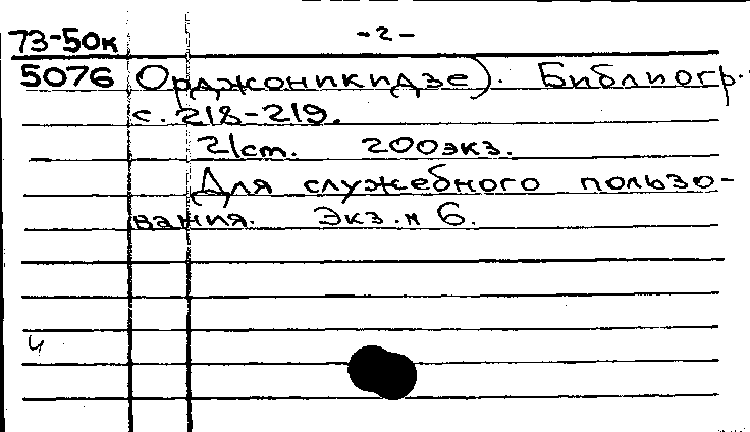 73-50к -2-
5076 Орджоникидзе). Библиогр.:
с. 218-219.
21 см. 200 экз.
Для служебного пользо-
вания. Экз. н 6.
ч